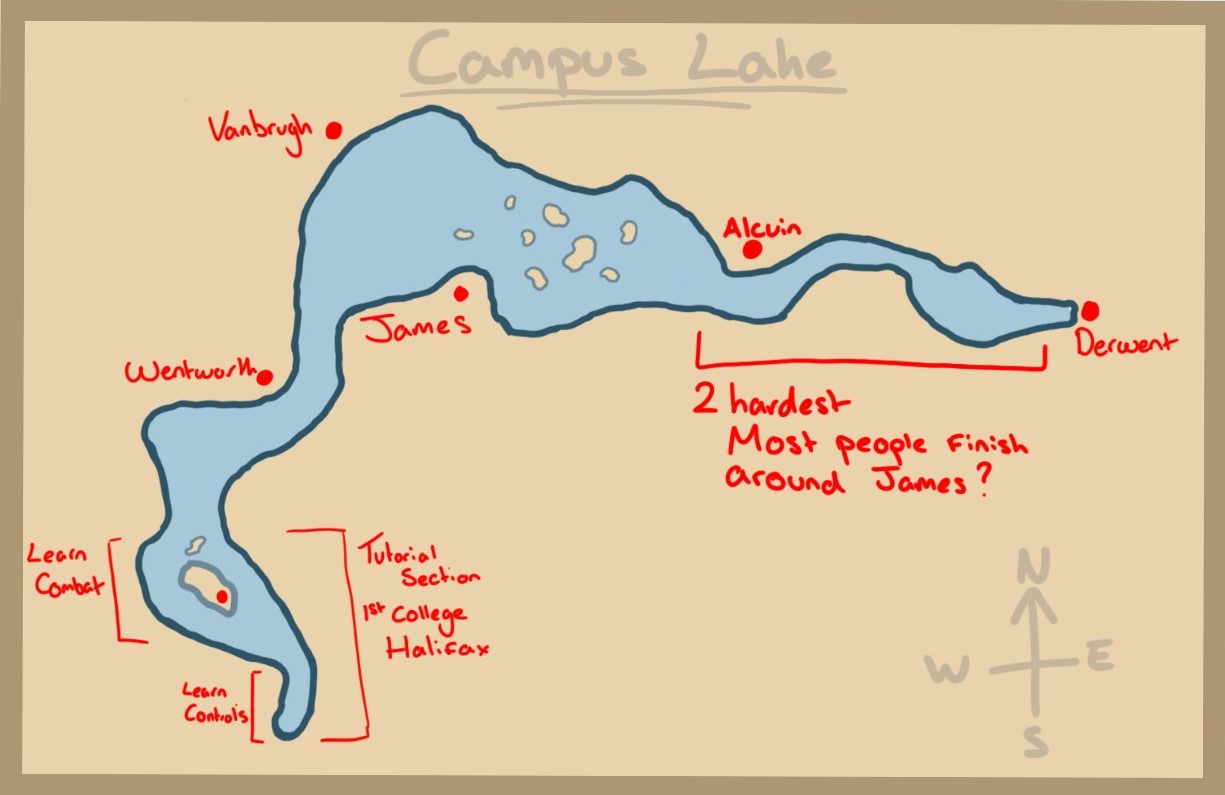 Campus Lake
Vanbrugh
Alcuin
James
Derwent
Wentworth
2 hardest
Most people finish
around James?
Learn
Combat
Tutorial
Section
1st College
Halifax
Learn
Controls
N
W E
S